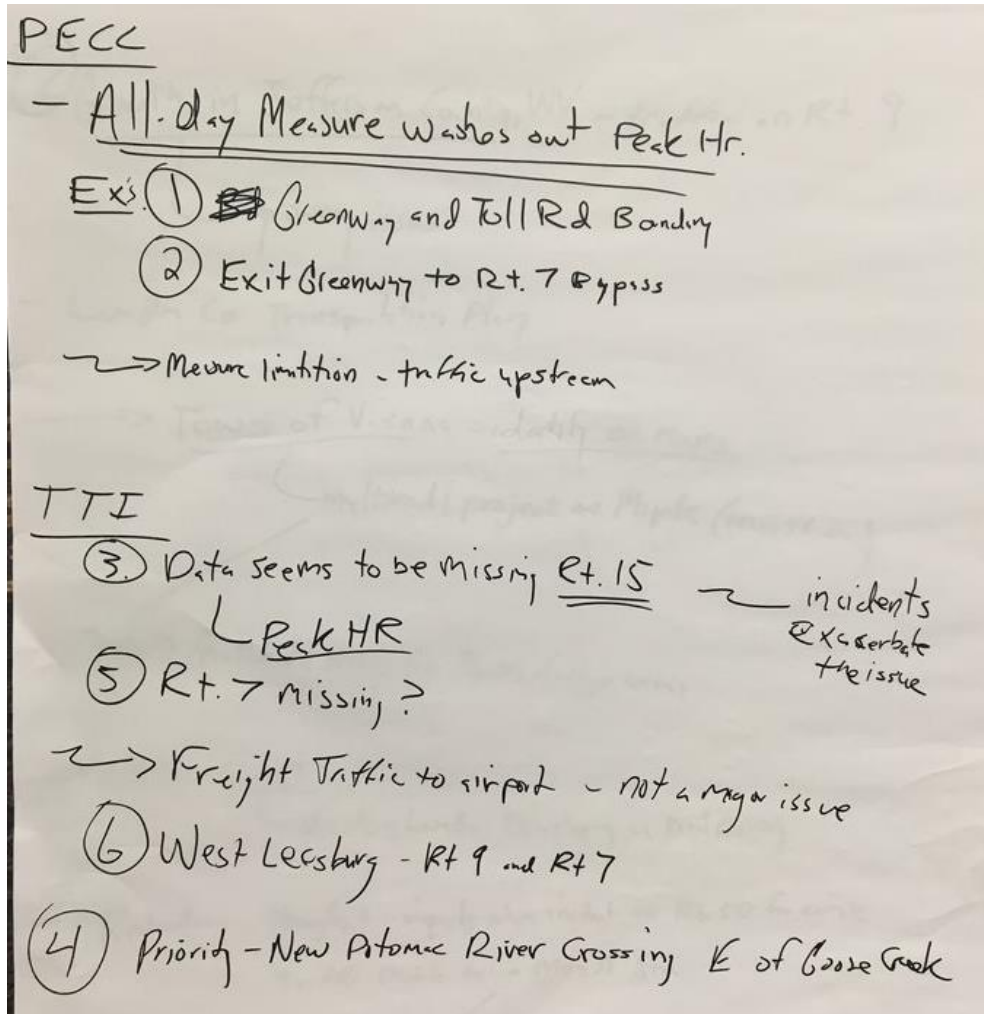 PECC
- All-day Measure Washes out Peak Hr.
Ex's: ① Greenway and Toll Rd Banding
② Exit Greenway to Rt. 7 Bypass
Measure limitition - traffic upstream
TTI
③. Data seems to be missing Rt. 15
incidents
exacerbate
the issue
Peak HR
⑤ Rt. 7 missing?
Freight Traffic to airport - not a major issue
⑥ West Leesburg - Rt 9 and Rt 7
④ Priority - New Potomac River Crossing E of Goose Creek